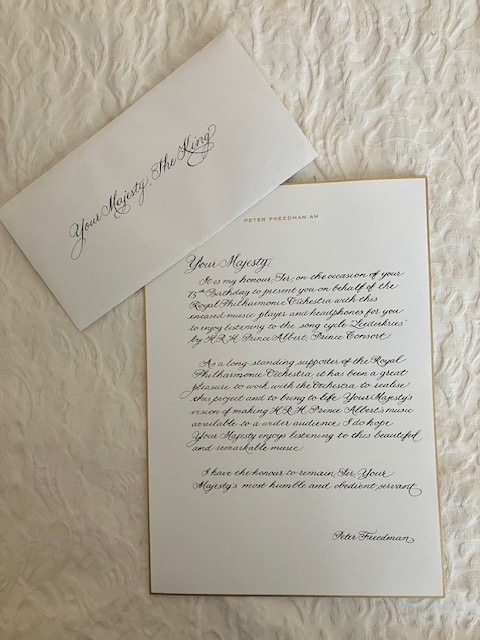 Your Majesty, The King
PETER FREEDMAN AM
Your Majesty,
It is my honour, Sir, on the occasion of your
75th Birthday to present you on behalf of the
Royal Philharmonic Orchestra with this
encased music player and headphones for you
to enjoy listening to the song cycle "Leiderkries"
by H.R.H. Prince Albert, Prince Consort.
As a long-standing supporter of the Royal
Philharmonic Orchestra, it has been a great
pleasure to work with the Orchestra to realise
this project and to bring to life Your Majesty's
vision of making H.R.H. Prince Albert's music
available to a wider audience. I do hope
Your Majesty enjoys listening to this beautiful
and remarkable music.
I have the honour to remain, Sir, Your
Majesty's most humble and obedient servant
Peter Freedman